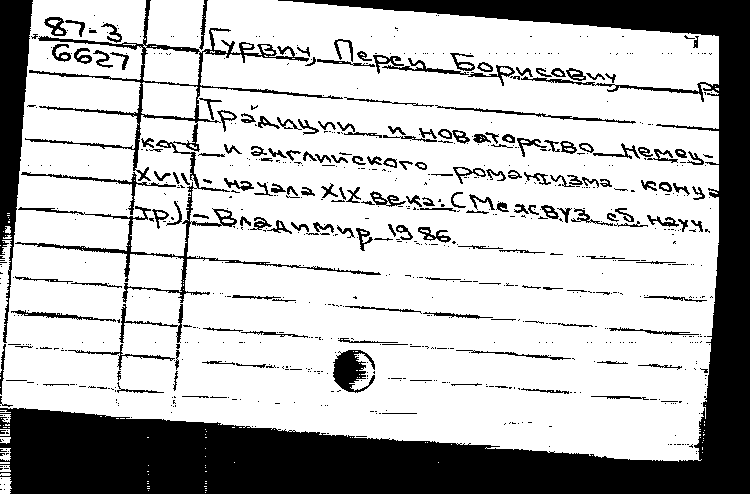 87-3
6627
Гурвич, Перси Борисович, ре
Традиции и новаторство немец-
кого и английского романтизма конца
XVIII - начала XIX века: (Межвуз. сб. науч.
тр.) - Владимир, 1986.